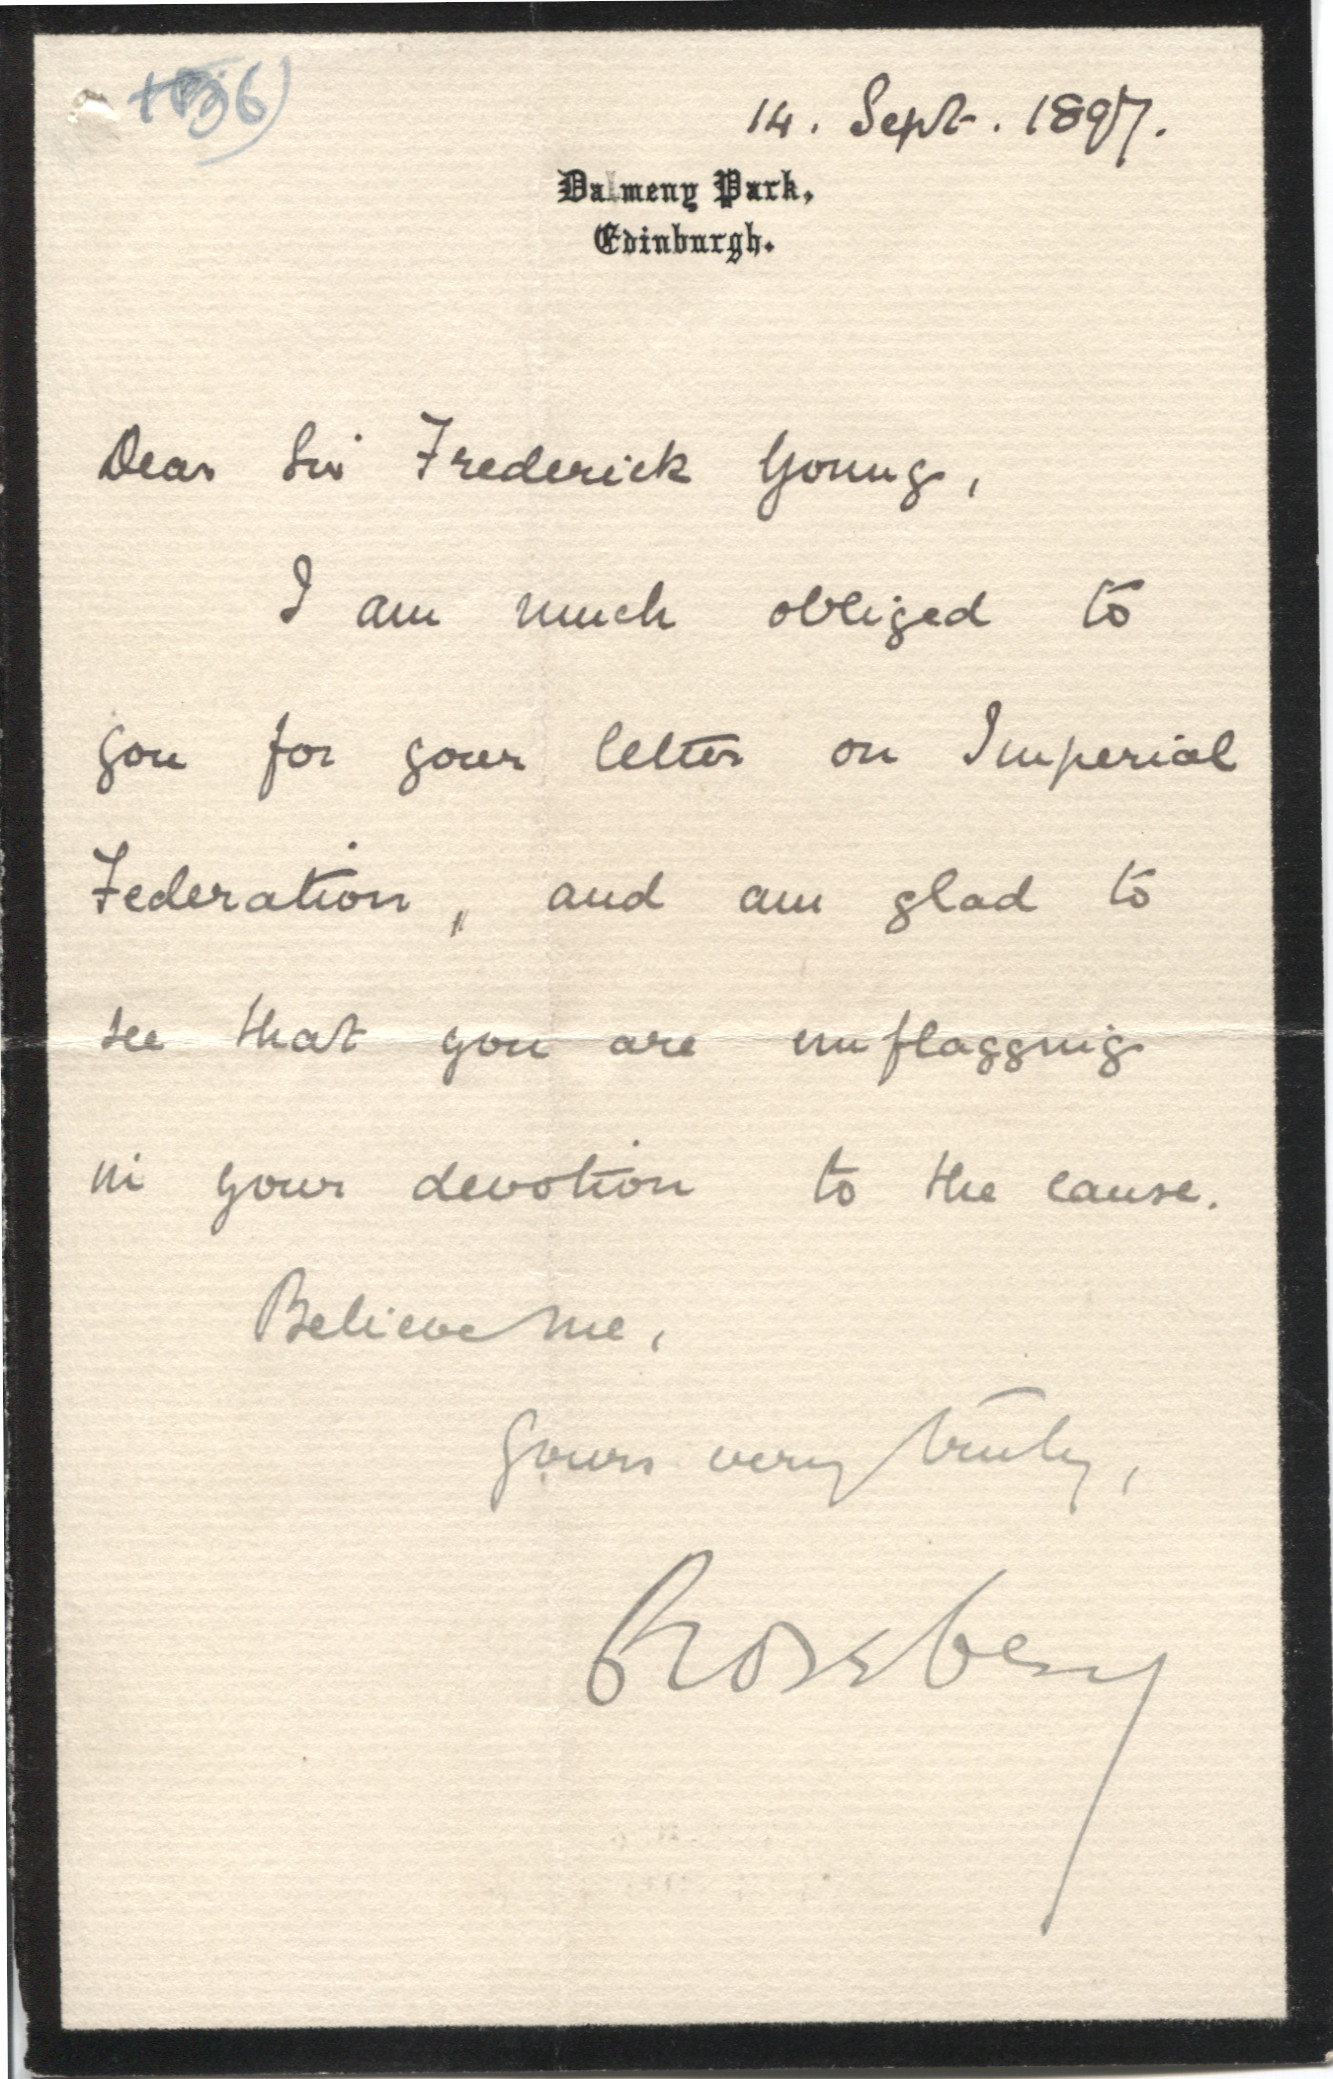 14. Sept. 1897.
Dalmeny Park,
Edinburgh.
Dear Sir Frederick Young,
I am much obliged to
you for your letter on Imperial
Federation, and am glad to
see that you are unflagging
in your devotion to the cause.
Believe me,
Yours very truly,
Rosebery